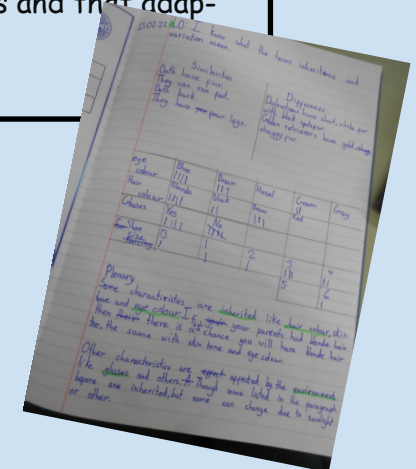 s and that adap-
23.02.22 L.O: I know what the terms inheritance and
variation mean.
Similarities
Both have fur.
They can run fast.
Both bark.
They have four legs.
Differences
Dalmatians have short, white fur
with black
Golden retrievers have gold,
shaggy fur.
eye colour Blue Brown Hazel Green Grey
Hair colour Blonde Black Brown Red
Glasses Yes No
Shoe size
3 1 2 3 4
5 6
Plenary
Some characteristics are inherited like hair colour, skin
tone and eye colour. I.E if your parents had blonde hair
then there is a chance you will have blonde hair
too, the same with skin tone and eye colour.
Other characteristics are affected by the environment
like glasses and others. Though some listed in the paragraph
before are inherited, but some can change due to sunlight
or other.